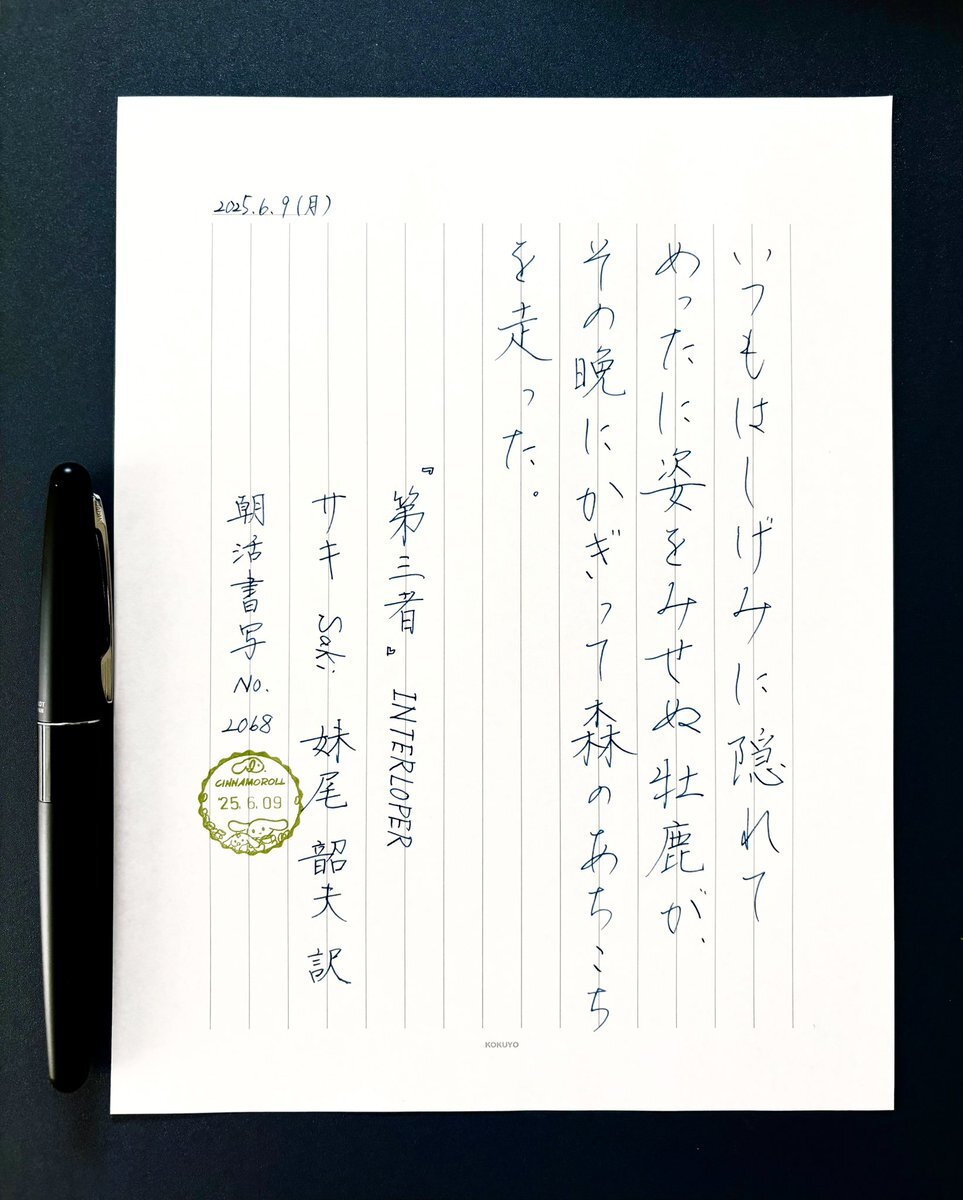 2025.6.9(月)
いつもはしげみに隠れて
めったに姿をみせぬ牡鹿が、
その晩にかぎって森のあちこち
を走った。
『第三者』 INTERLOPER
サキ Saki 妹尾韶夫訳
朝活書写 No. 2068
CINNAMOROLL
25.6.09
KOKUYO